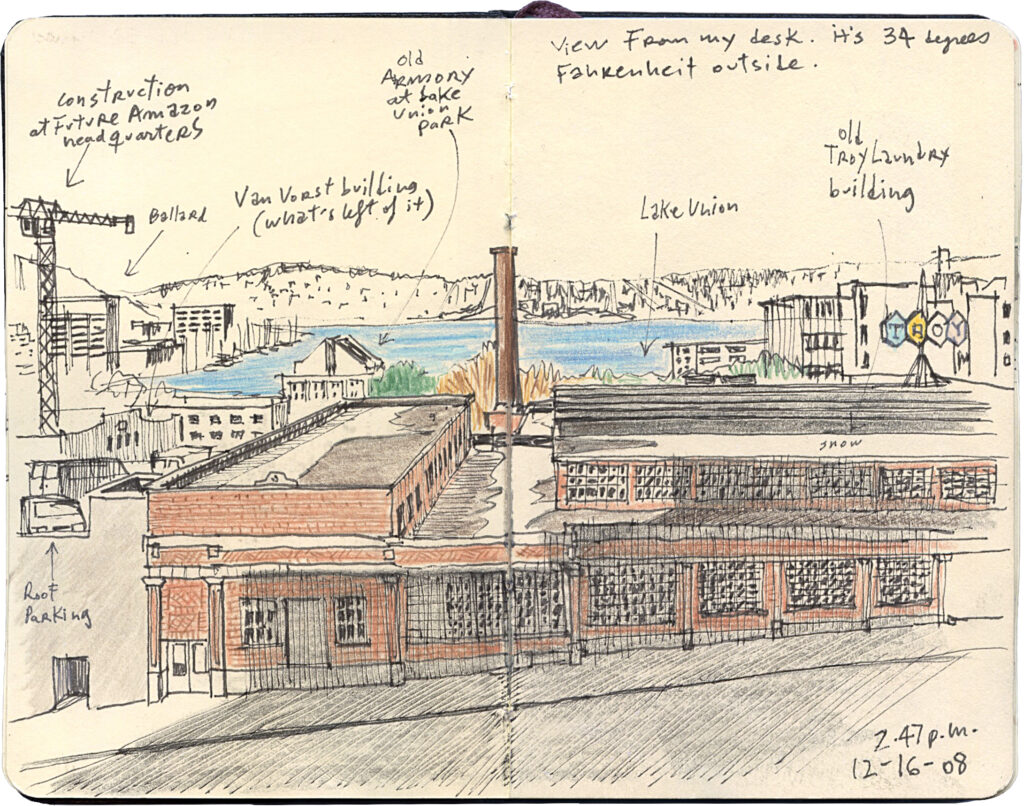 View From my desk. it's 34 degrees
Fahrenheit outside.
construction
at Future Amazon
headquarters
old
ARMORY
at Lake
Union
park
old
TROY Laundry
building
Ballard
Van Vorst building
(what's left of it)
Lake Union
TROY
snow
Roof
Parking
2.47 p.m.
12-16-08